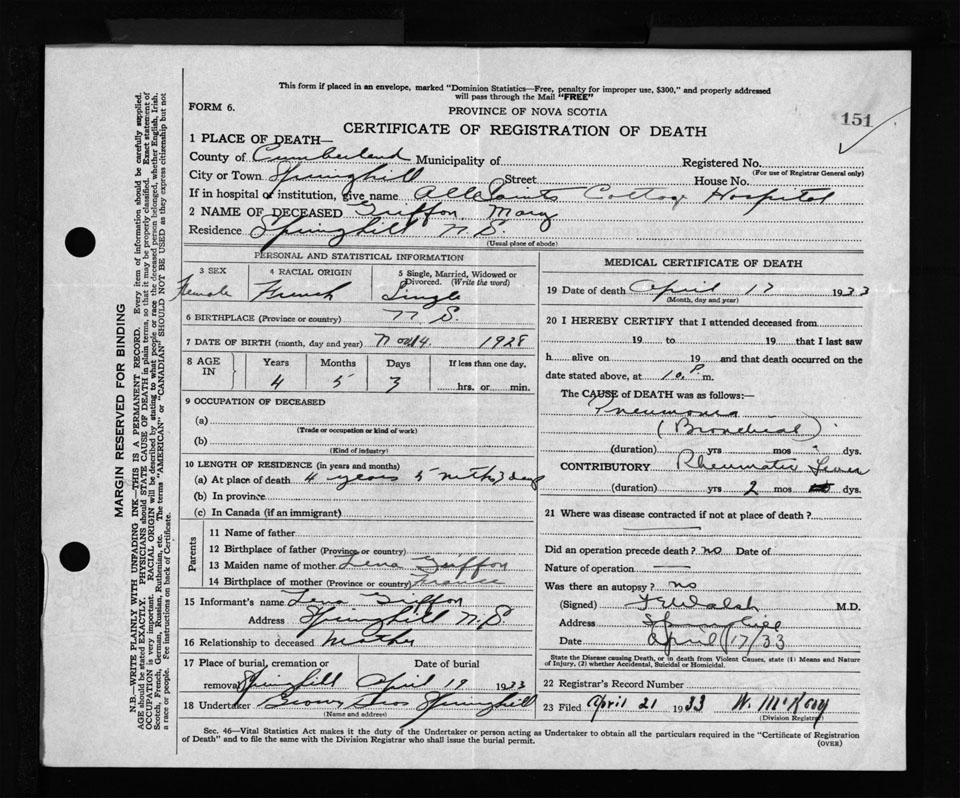 This form if placed in an envelope, marked "Dominion Statistics—Free, penalty for improper use, $300," and properly addressed
will pass through the Mail "FREE"
FORM 6.
PROVINCE OF NOVA SCOTIA
151
CERTIFICATE OF REGISTRATION OF DEATH
1 PLACE OF DEATH—
County of Cumberland Municipality of Registered No.
(For use of Registrar General only)
City or Town Springhill Street House No.
If in hospital or institution, give name All Saints Cottage Hospital
2 NAME OF DECEASED Griffon, Mary
Residence Springhill N.S.
(Usual place of abode)
PERSONAL AND STATISTICAL INFORMATION
3 SEX 4 RACIAL ORIGIN 5 Single, Married, Widowed or
Divorced. (Write the word)
Female French Single
6 BIRTHPLACE (Province or country) N.S.
7 DATE OF BIRTH (month, day and year) Nov 14. 1928
8 AGE IN Years Months Days If less than one day,
4 5 3 hrs. or min.
9 OCCUPATION OF DECEASED
(a)
(Trade or occupation or kind of work)
(b)
(Kind of industry)
10 LENGTH OF RESIDENCE (in years and months)
(a) At place of death 4 years 5 mths 3 days
(b) In province
(c) In Canada (if an immigrant)
Parents
11 Name of father
12 Birthplace of father (Province or country)
13 Maiden name of mother Lena Griffon
14 Birthplace of mother (Province or country) France
15 Informant's name Lena Griffon
Address Springhill N.S.
16 Relationship to deceased Mother
17 Place of burial, cremation or Date of burial
removal Springhill April 19 1933
18 Undertaker Brown Bros Springhill
(Name and address)
MEDICAL CERTIFICATE OF DEATH
19 Date of death April 17 1933
(Month, day and year)
20 I HEREBY CERTIFY that I attended deceased from
19 to 19 that I last saw
h alive on 19 and that death occurred on
date stated above, at 10 P. m.
The CAUSE of DEATH was as follows:—
Pneumonia
(Bronchial)
(duration) yrs mos dys.
CONTRIBUTORY Rheumatic Fever
(duration) yrs 2 mos dys.
21 Where was disease contracted if not at place of death?
Did an operation precede death? no Date of
Nature of operation
Was there an autopsy? no
(Signed) Walsh M.D.
Address Springhill
Date April 17/33
State the Disease causing Death, or in death from Violent Causes, state (1) Means and Nature
of Injury, (2) whether Accidental, Suicidal or Homicidal.
22 Registrar's Record Number
23 Filed April 21 1933 W. McKay
(Division Registrar)
Sec. 46—Vital Statistics Act makes it the duty of the Undertaker or person acting as Undertaker to obtain all the particulars required in the "Certificate of Registration
of Death" and to file the same with the Division Registrar who shall issue the burial permit.
(OVER)
MARGIN RESERVED FOR BINDING
N.B.—WRITE PLAINLY WITH UNFADING INK—THIS IS A PERMANENT RECORD. Every item of information should be carefully supplied.
AGE should be stated EXACTLY. PHYSICIANS should STATE CAUSE OF DEATH in plain terms, so that it may be properly classified. Exact statement of
OCCUPATION is very important. RACIAL ORIGIN will be described by stating to what people or race the deceased person belonged, whether English, Irish,
Scotch, French, German, Russian, Ruthenian, etc. The terms "AMERICAN" or "CANADIAN" SHOULD NOT BE USED as they express citizenship but not
a race or people. See instructions on back of Certificate.